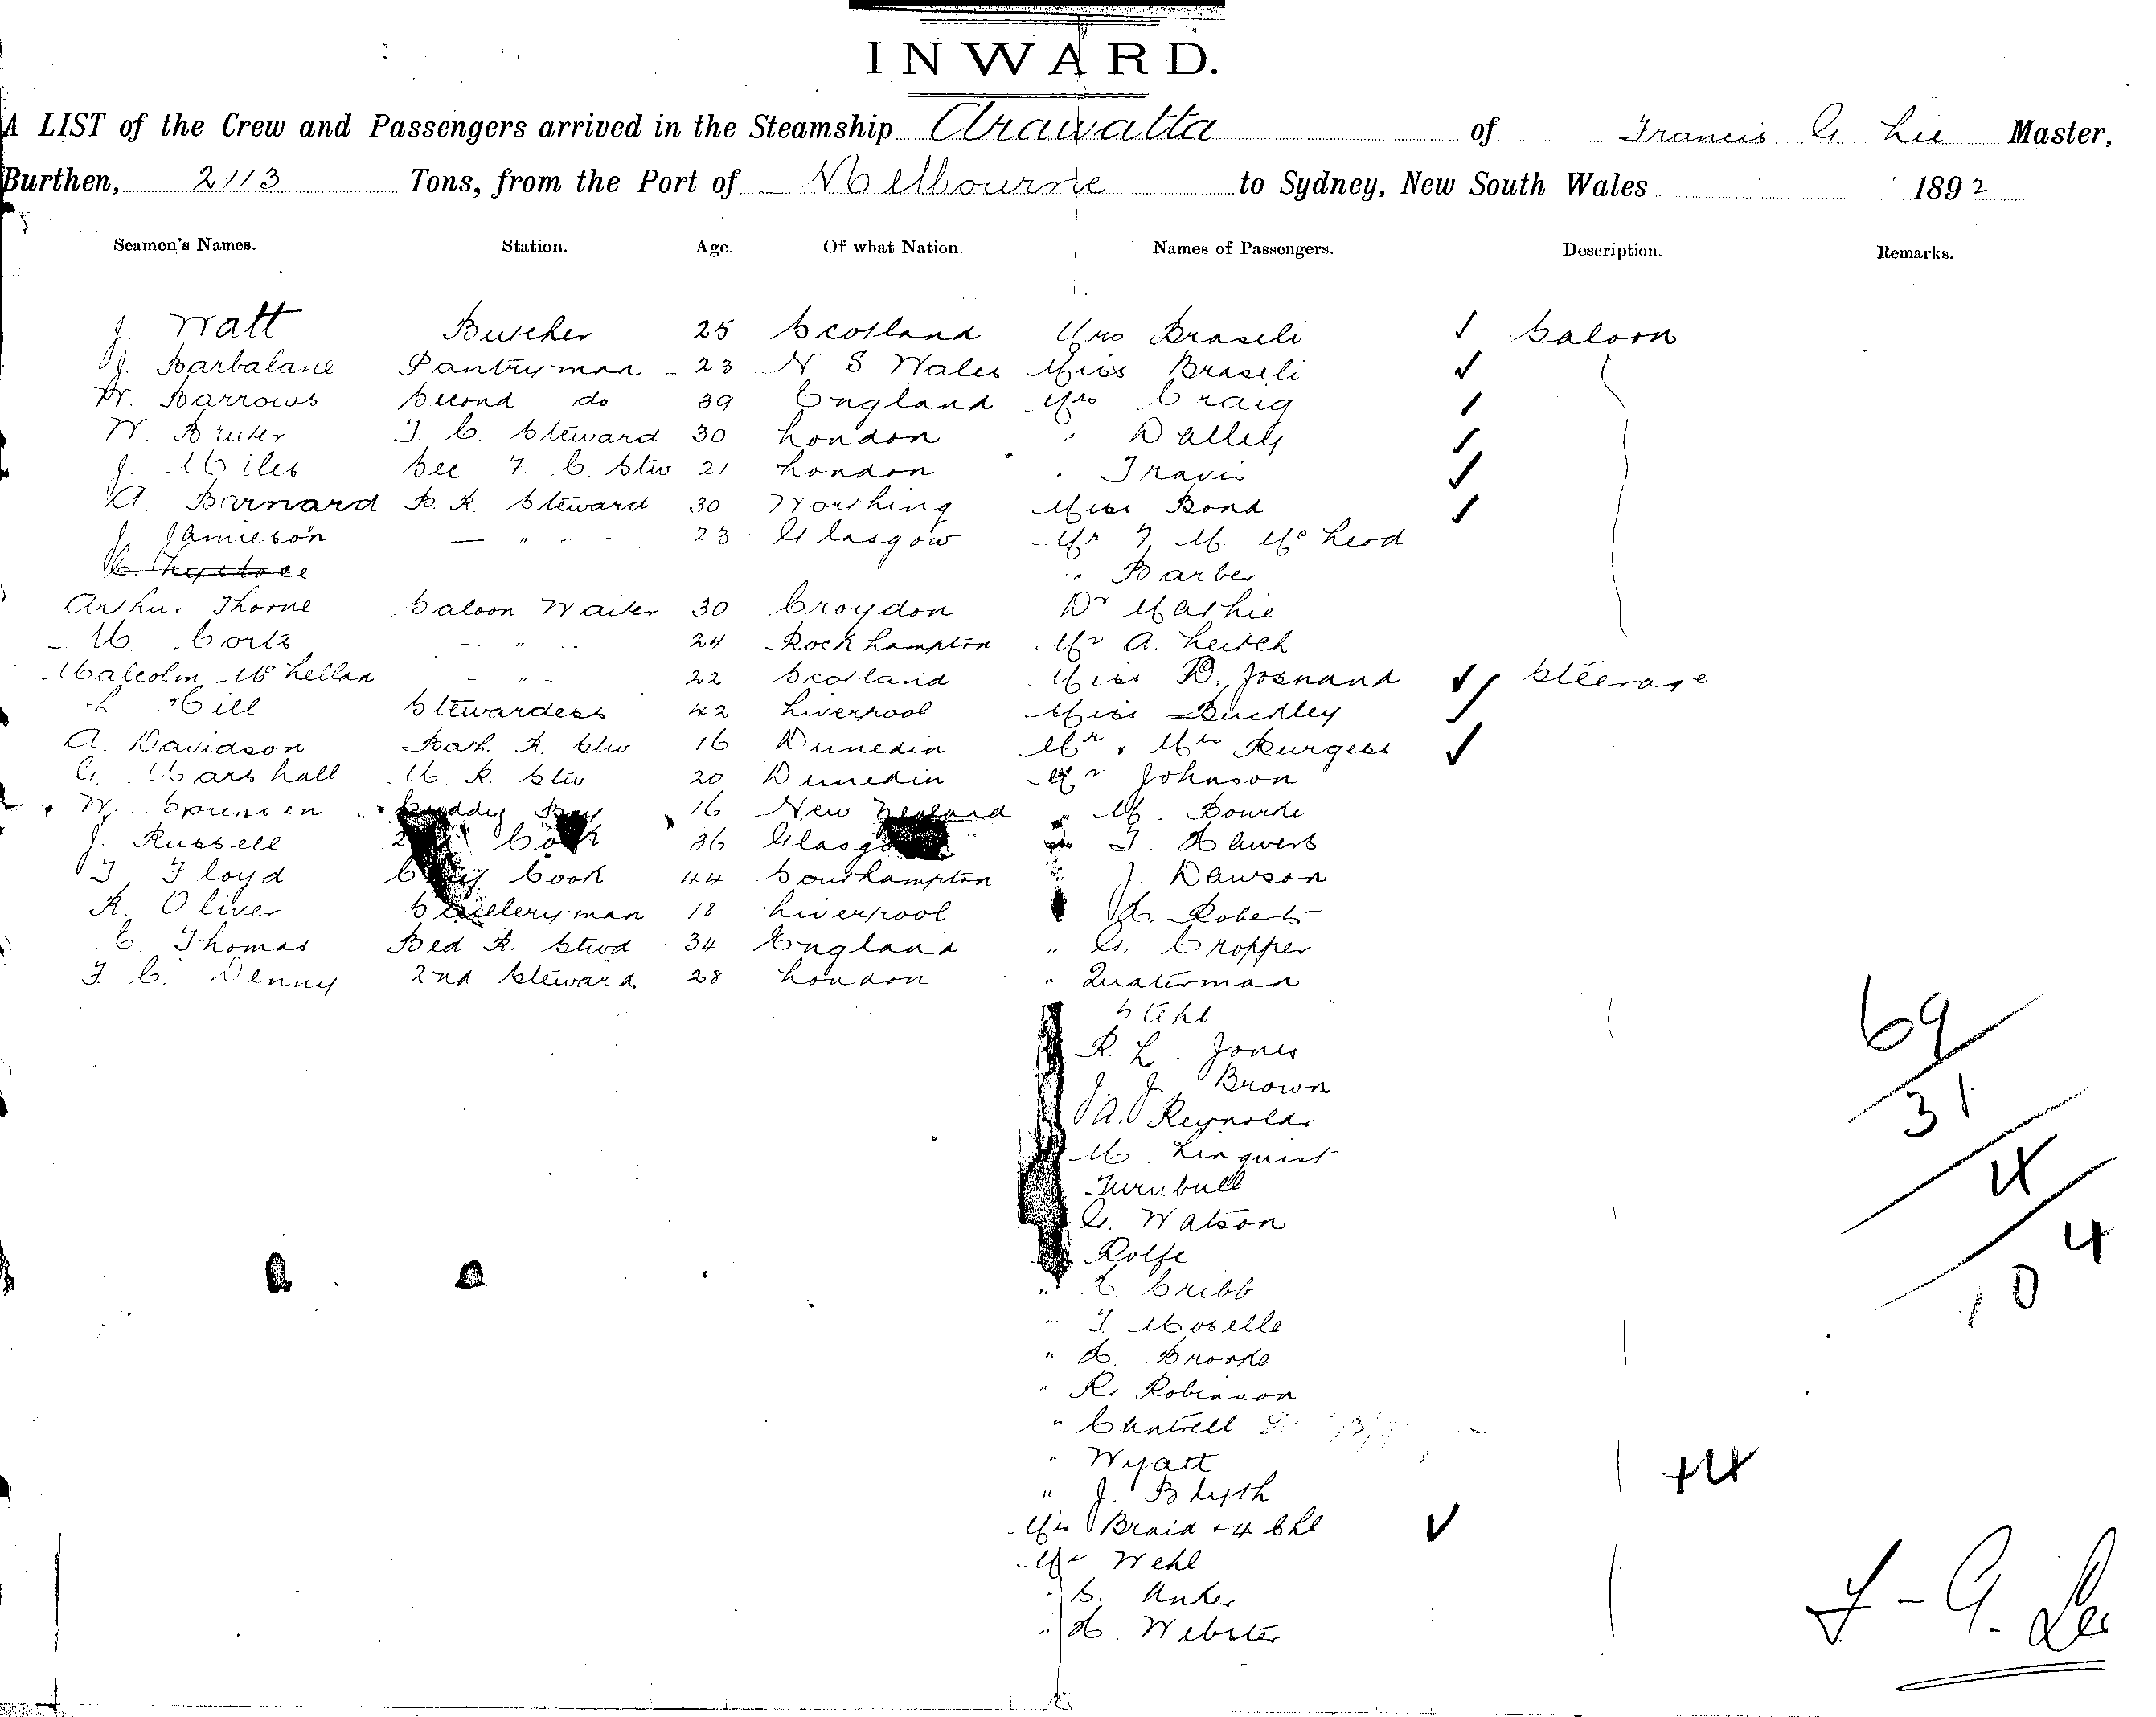 INWARD.
A LIST of the Crew and Passengers arrived in the Steamship Arawatta of Francis G Lee Master,
Burthen, 2113 Tons, from the Port of Melbourne to Sydney, New South Wales 1892
Seamen's Names. Station. Age. Of what Nation. Names of Passengers. Description. Remarks.
J. Watt Butcher 25 Scotland Mrs Braseli Saloon
J. Barbalane Pantryman - 23 N. S. Wales Miss Braseli
W. Barrows Second do 39 England Mrs Craig
W. Bruter F. C. Steward 30 London " Dalley
J. Miles Sec F. C. Stw 21 London " Travis
A. Barnard B. R. Steward 30 Worthing Miss Bond
J. Jamieson — " - - 23 Glasgow Mr F. M. McLeod
" Barber
Arthur Thorne Saloon Waiter 30 Croydon Dr Mathie
M. Cortz — " - 24 Rockhampton Mr A. Leitch
Malcolm McLellan - " - 22 Scotland Miss D. Josnand Steerage
L Gill Stewardess 42 Liverpool Miss Buckley
A. Davidson Bar. R. Stw 16 Dunedin Mr & Mrs Burgess
G. Marshall M. R. Stw 20 Dunedin Mr Johnson
W. Sorensen Boy 16 New Zealand " M. Bourke
J. Russell 2 Cook 36 Glasgow T. Hawers
F. Floyd Cook 44 Southampton J. Dawson
R. Oliver Sculleryman 18 Liverpool Roberts
C. Thomas Bed R. Stwd 34 England " G. Cropper
F. C. Denny 2nd Steward 28 London " Quaterman
Stehb
R. L. Jones
J. J. Brown
A. Reynolds
M. Linquist
Turnbull
G. Watson
Rolfe
" C. Cribb
" F. Moselle
" H. Brooke
" R. Robinson
" Cantrell
" Wyatt
" J. Blyth
Mrs Braid + 4 Chl
Mr Wehl
" S. Anker
" H. Webster
69
31
4
104
+4
F - G. Lee